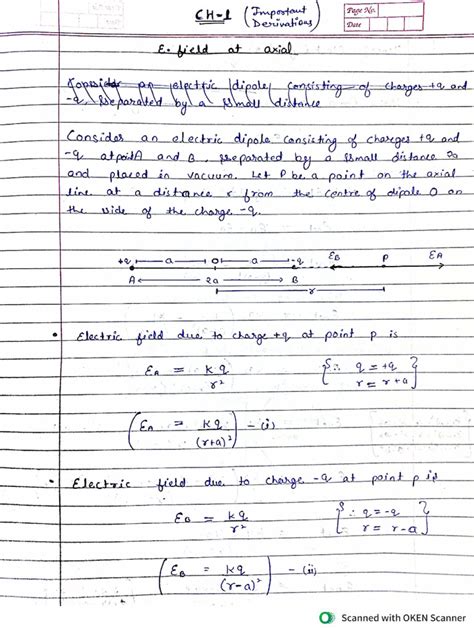 CH-1 (Important Derivations)
Page No.
Date
E. field at axial
Consider an electric dipole consisting of charges +q and
-q, seperated by a small distance
Consider an electric dipole consisting of charges +q and
-q at point A and B, seperated by a small distance 2a
and placed in vacuum. Let P be a point on the axial
line at a distance r from the centre of dipole O on
the side of the charge -q.
+q a O a -q EB P EA
A 2a B
r
• Electric field due to charge +q at point p is
EA = kq/r² {∵ q = +q
r = r+a}
(EA = kq/(r+a)²) - (i)
• Electric field due to charge -q at point p is
EB = kq/r² {∵ q = -q
r = r-a}
(EB = kq/(r-a)²) - (ii)
Scanned with OKEN Scanner